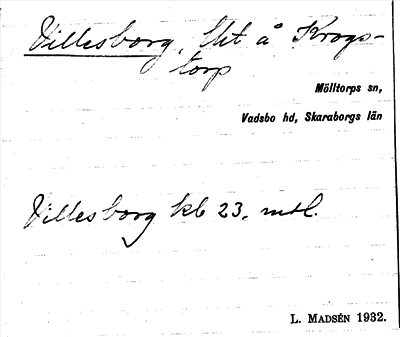 Villesborg, lht å Krogs-
torp
Mölltorps sn,
Vadsbo hd, Skaraborgs län
Villesborg kb 23, mtl.
L. MADSÉN 1932.